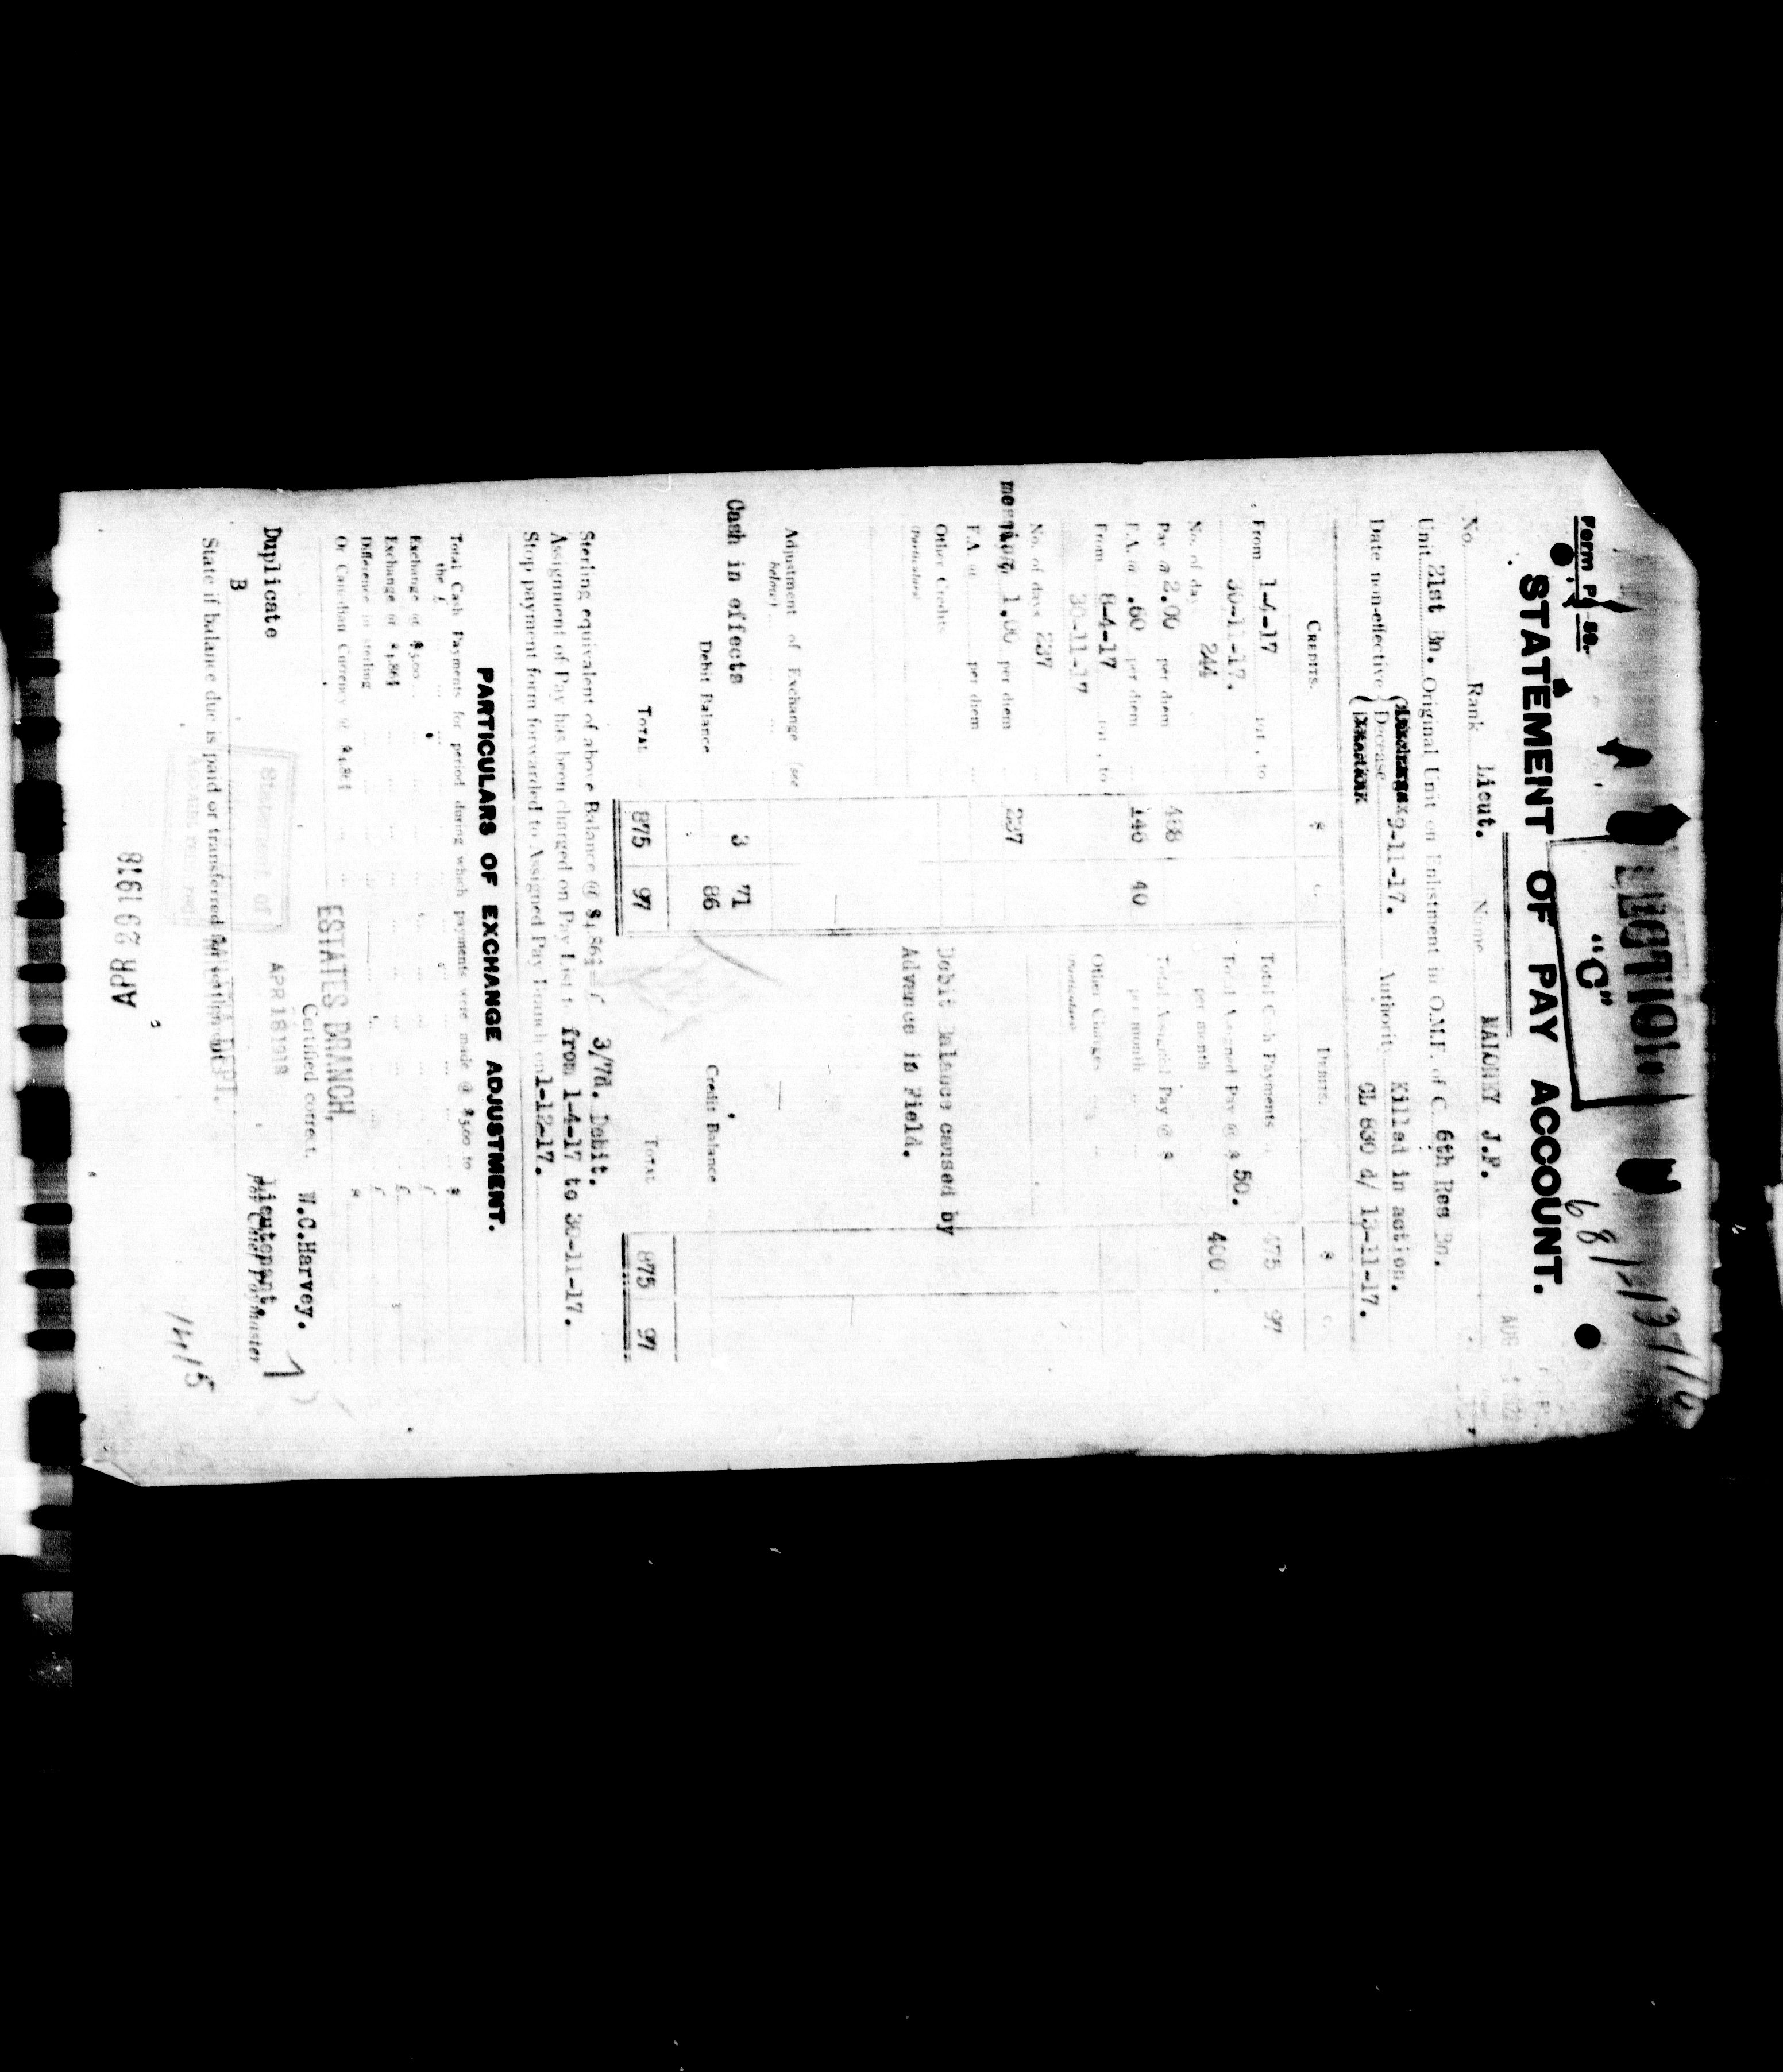 Form P 59.
SECTION
"C"
681-13716
STATEMENT OF PAY ACCOUNT.
No. Rank Lieut. Name MALONEY J.F.
Unit 21st Bn. Original Unit on Enlistment in O.M.F. of C. 6th Res Bn.
Date non-effective { Discharge 9-11-17. Decease Desertion Authority Killed in action.
CL 630 d/ 13-11-17.
CREDITS. $ c. DEBITS. $ c.
From 1-4-17 to Total Cash Payments 475 97
30-11-17. Total Assigned Pay @ $ 50.
per month 400
No. of days 244
Pay @ 2.00 per diem 488 Total Assigned Pay @ $
F.A. @ .60 per diem 146 40 per month
From 8-4-17 to Other Charges
30-11-17 Particulars
No. of days 237
messing 1.00 per diem 237
F.A. @ per diem
Other Credits Debit balance caused by
(Particulars) Advance in Field.
Adjustment of Exchange (see
below)
Cash in effects 3 71
Debit Balance 86 Credit Balance
TOTAL 875 97 TOTAL 875 97
Sterling equivalent of above Balance @ $4.86⅔ = £ 3/7d. Debit.
Assignment of Pay has been charged on Pay List to from 1-4-17 to 30-11-17.
Stop payment form forwarded to Assigned Pay Branch on 1-12-17.
PARTICULARS OF EXCHANGE ADJUSTMENT.
Total Cash Payments for period during which payments were made @ $5.00 to
the £ $
Exchange at $5.00 £
Exchange at $4.86⅔ £
Difference in sterling £
Or Canadian Currency @ $4.86⅔ $
ESTATES BRANCH,
Certified correct. W.C.Harvey.
Duplicate Statement of APR 18 1918 Lieutenant.
B for Chief Paymaster
State if balance due is paid or transferred
14/5
APR 29 1918